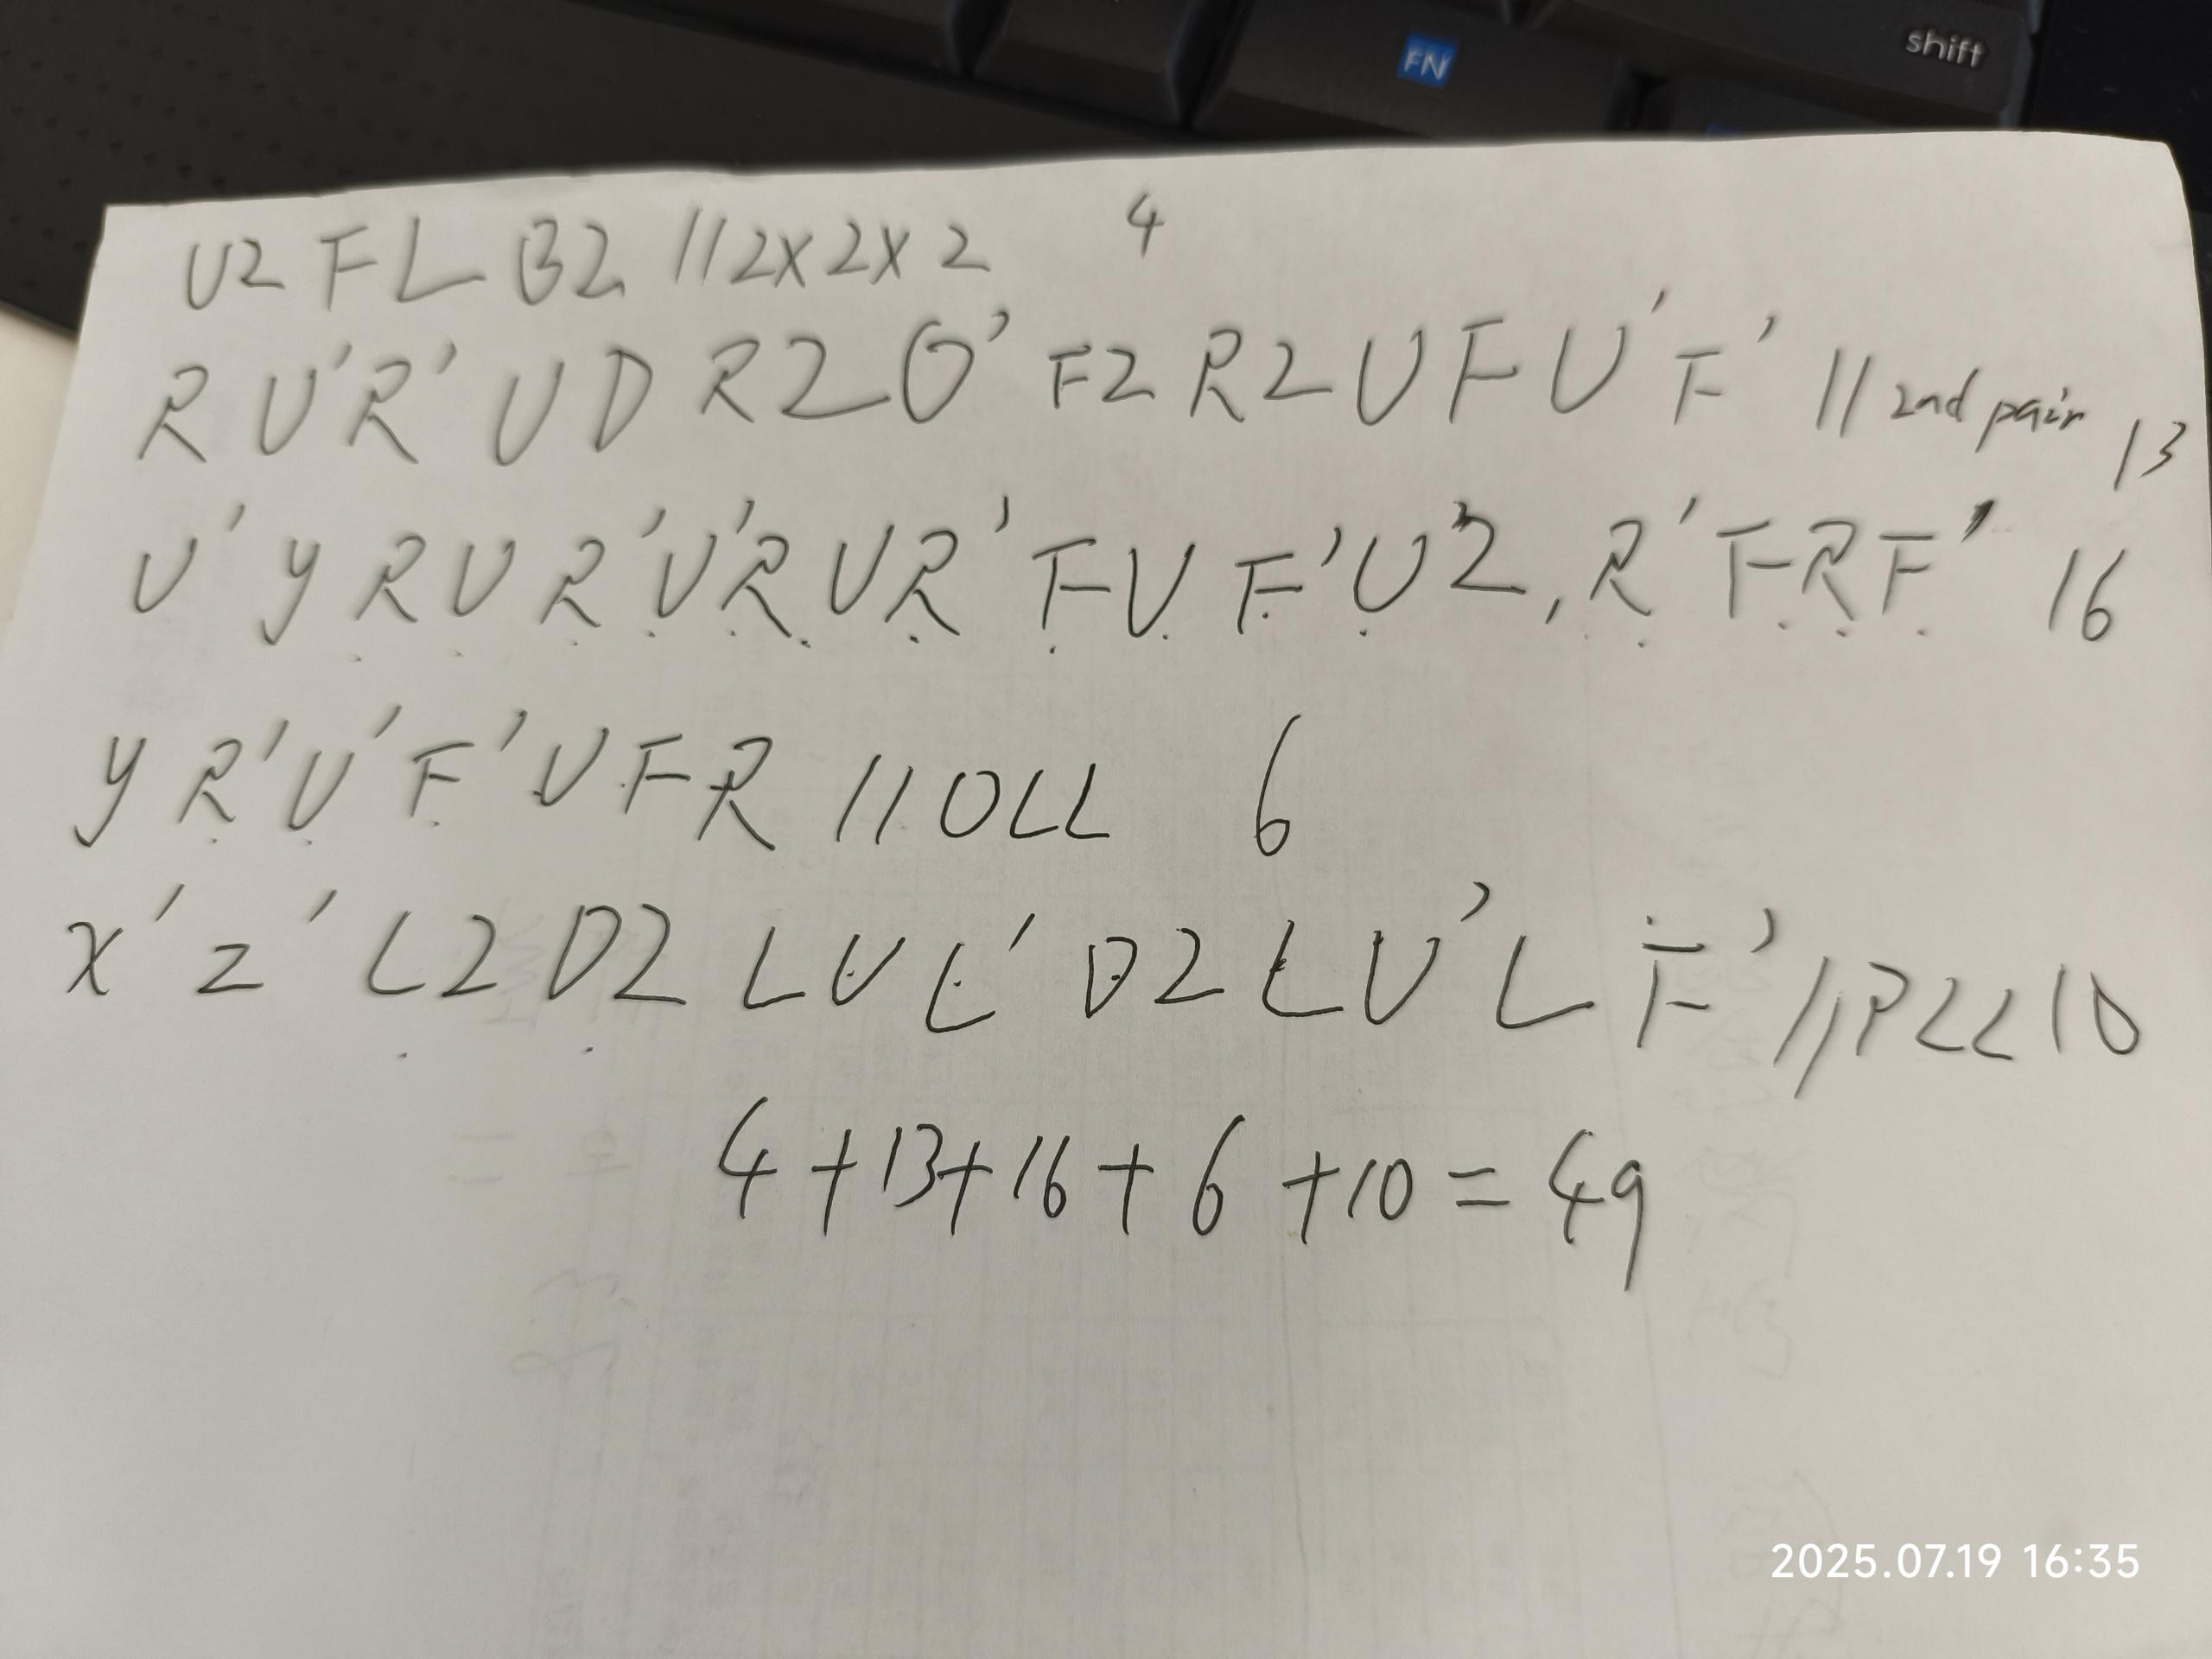 FN
shift
U2 F L B2 // 2x2x2 4
R U' R' U D R2 D' F2 R2 U F U' F' // 2nd pair 13
U' y R U R' U' R U R' F U F' U2, R' F R F' 16
y R' U' F' U F R // OLL 6
x' z' L2 D2 L U L' D2 L U' L F' // PLL 10
4 + 13 + 16 + 6 + 10 = 49
2025.07.19 16:35